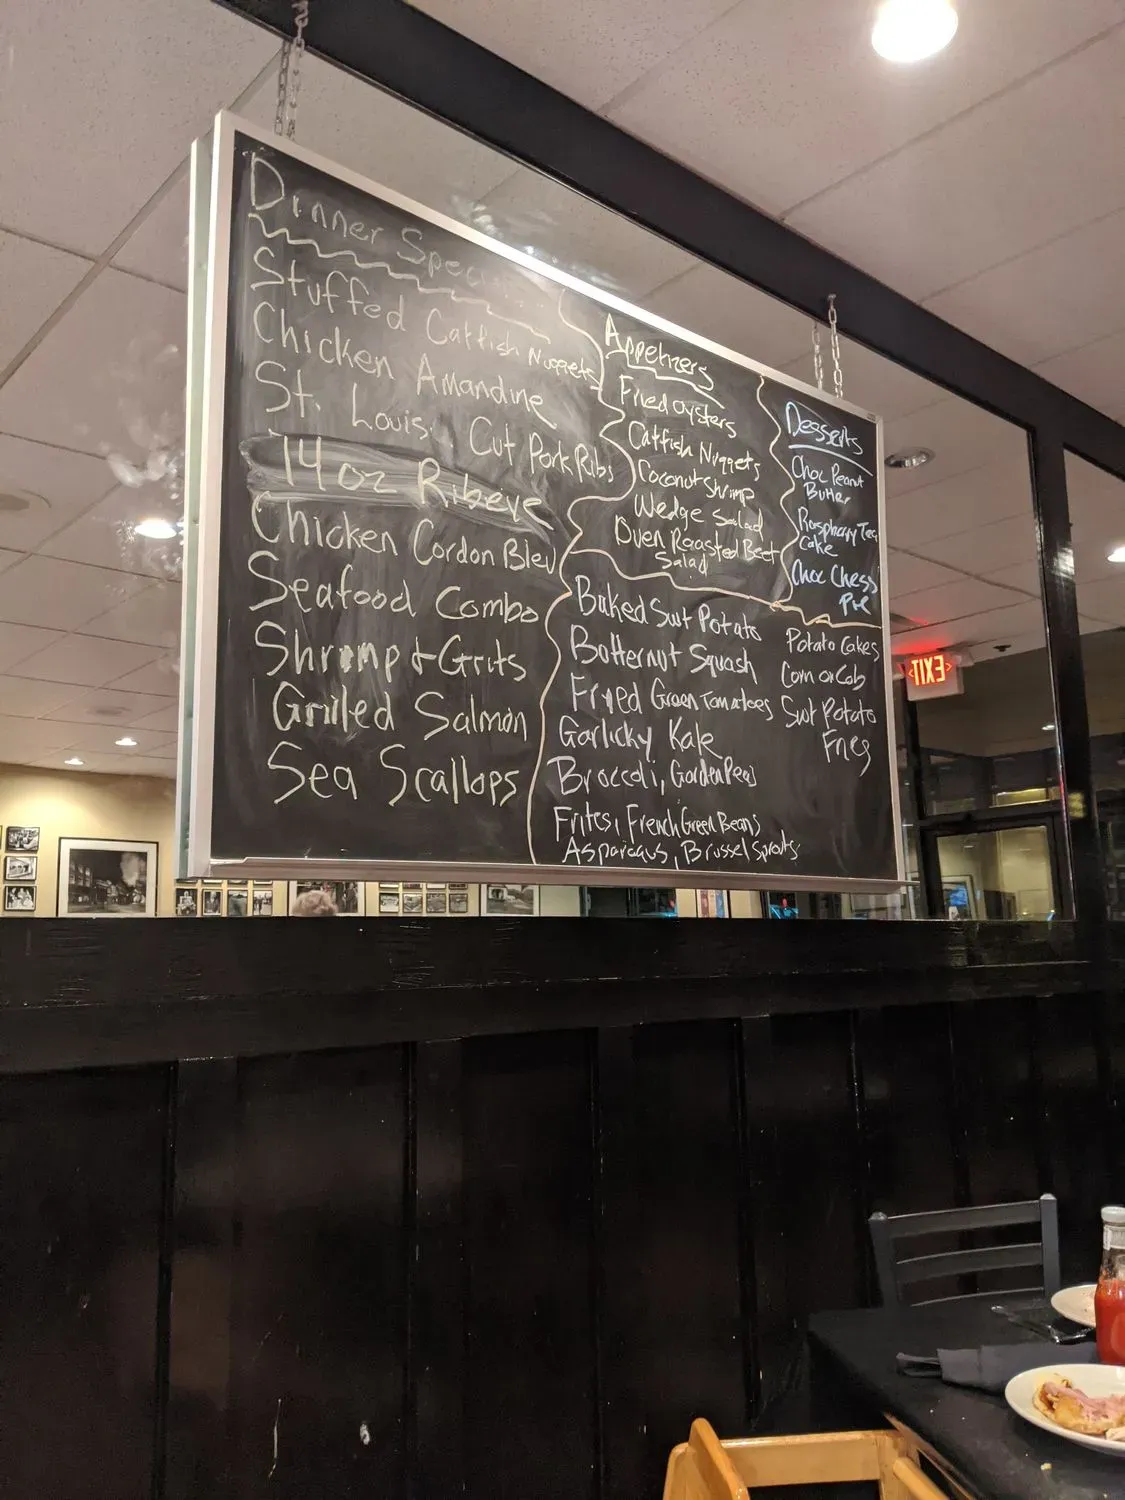 Dinner Spec
Stuffed Catfish Nuggets
Chicken Amandine
St. Louis Cut Pork Ribs
14 oz Ribeye
Chicken Cordon Bleu
Seafood Combo
Shrimp + Grits
Grilled Salmon
Sea Scallops
Appetizers
Fried oysters
Catfish Nuggets
Coconut Shrimp
Wedge Salad
Oven Roasted Beet
Salad
Desserts
Choc Peanut
Butter
Raspberry Tea
Cake
Choc Chess
Pie
Baked Swt Potato
Butternut Squash
Fryed Green Tomatoes
Garlicky Kale
Broccoli, Garden Peas
Frites, French Green Beans
Asparagus, Brussel Sprouts
Potato Cakes
Corn on Cob
Swt Potato
Fries
EXIT